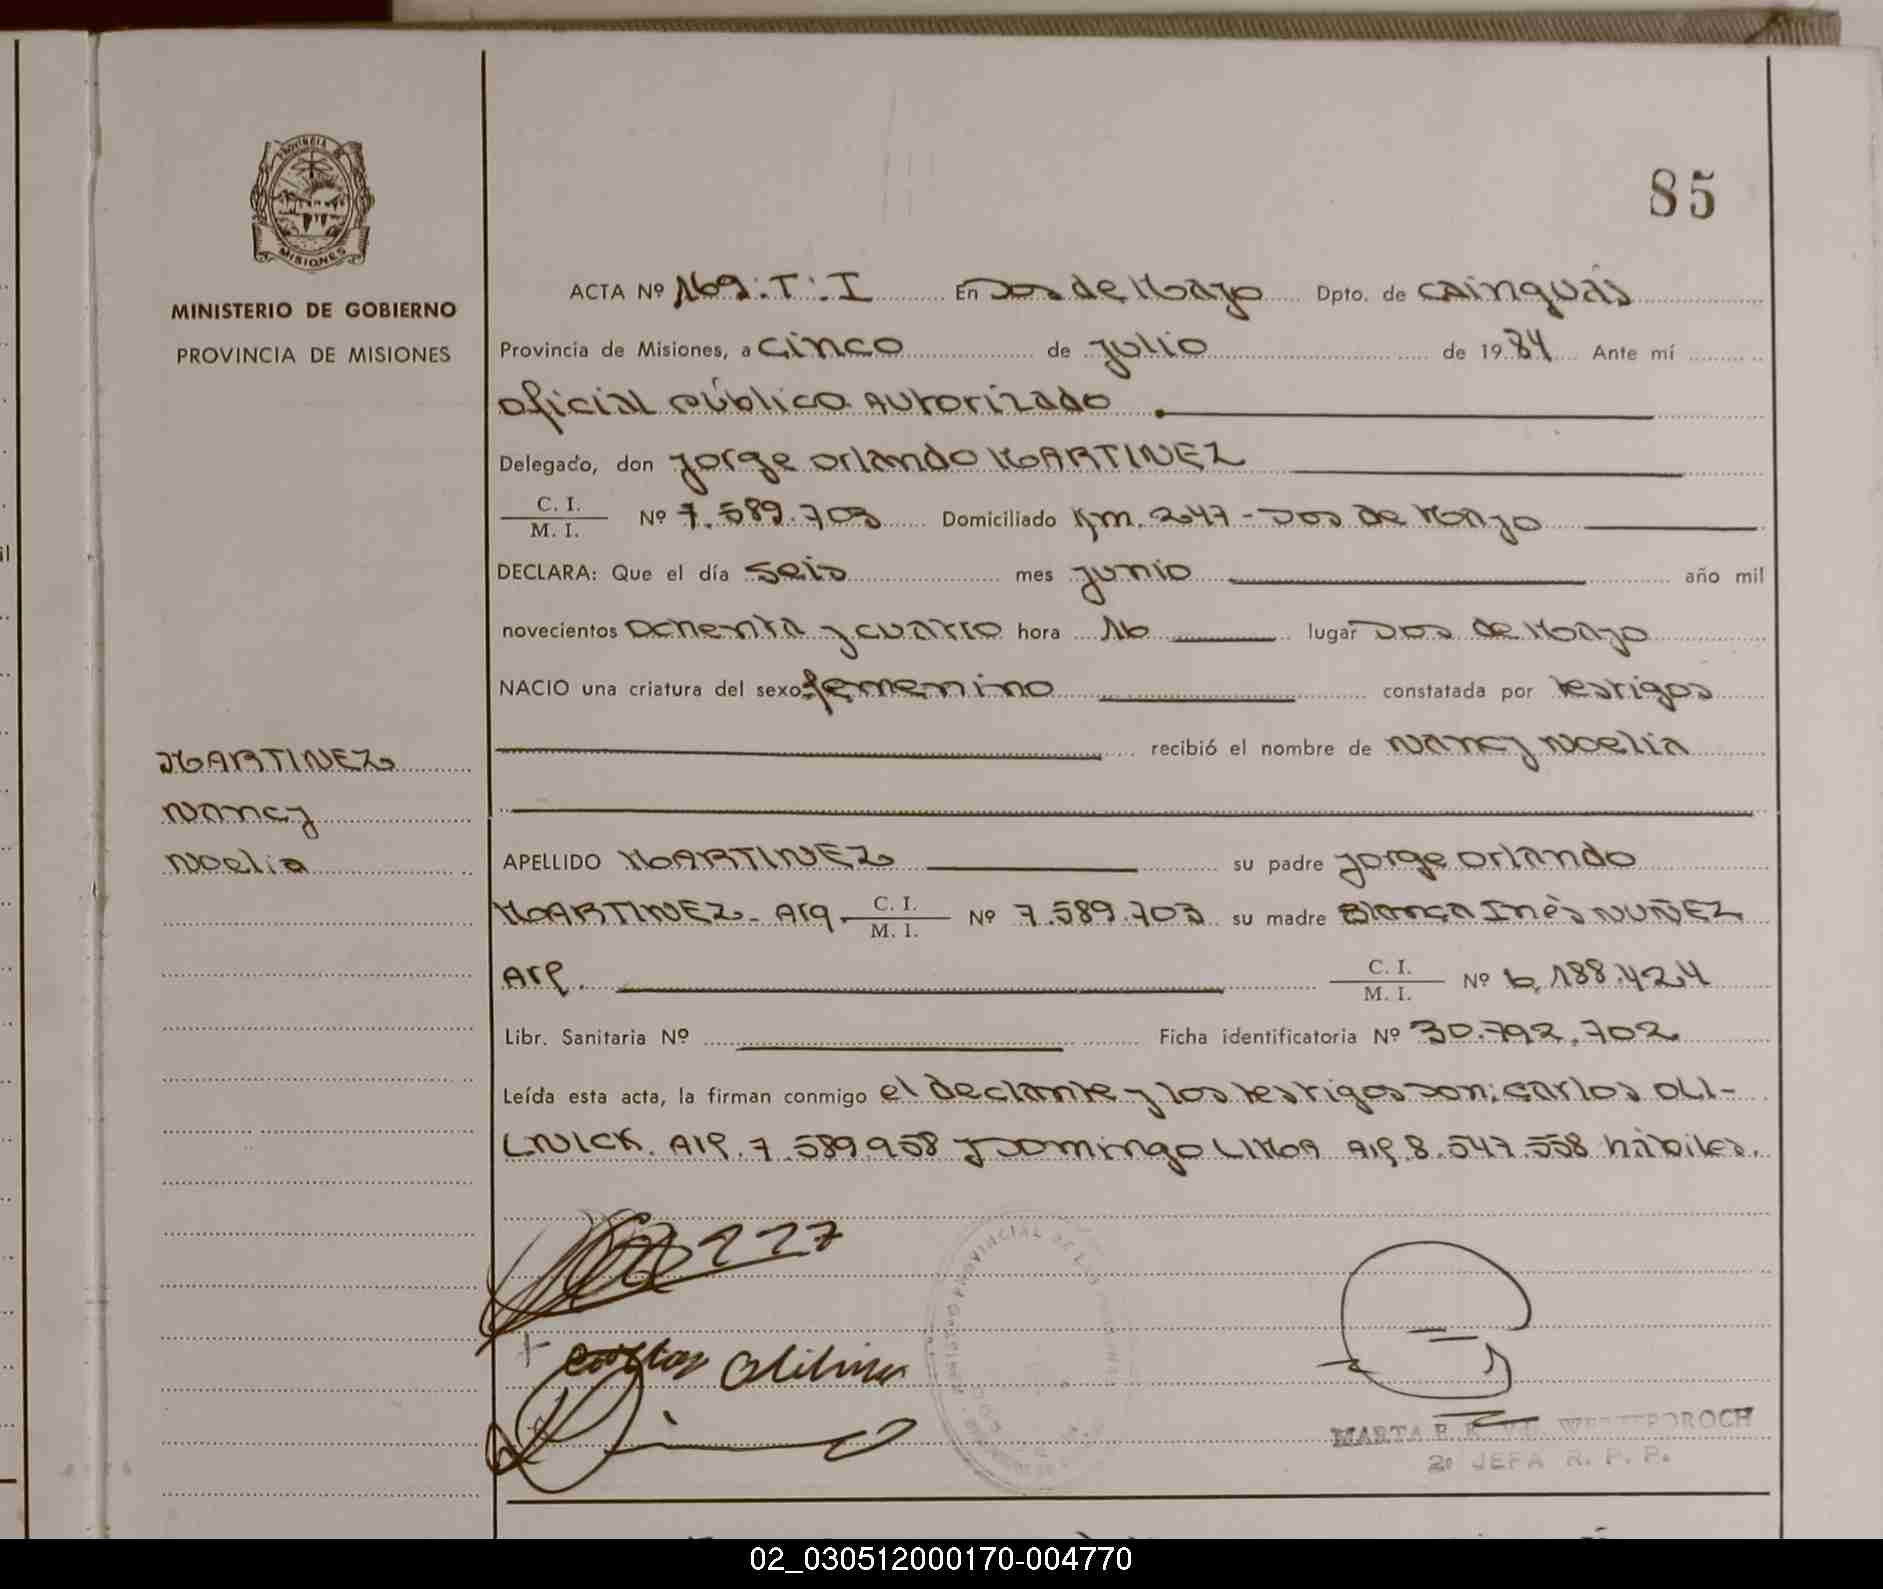 85
PROVINCIA DE
MISIONES
MINISTERIO DE GOBIERNO
PROVINCIA DE MISIONES
ACTA Nº 169:T:I En Dos de Mayo Dpto. de CAinguás
Provincia de Misiones, a cinco de julio de 1984 Ante mí
oficial público Autorizado
Delegado, don jorge orlando MARTINEZ
C. I.
M. I. Nº 7.589.703 Domiciliado Km. 247 - Dos de Mayo
DECLARA: Que el día seis mes junio año mil
novecientos ochenta y cuatro hora 16 lugar Dos de Mayo
NACIO una criatura del sexo femenino constatada por testigos
recibió el nombre de Nancy Noelia
MARTINEZ
Nancy
Noelia
APELLIDO MARTINEZ su padre jorge orlando
MARTINEZ - Arg. C. I.
M. I. Nº 7.589.703 su madre Blanca Inés NUÑEZ
Arg. C. I.
M. I. Nº 6.188.424
Libr. Sanitaria Nº Ficha identificatoria Nº 30.792.702
Leída esta acta, la firman conmigo el declante y los testigos son: carlos OLI-
LNICK. AIP. 7.589.958 y Domingo LIMA AIP. 8.547.558 hábiles.
carlos
MARTA
2º JEFA R. P. P.
02_030512000170-004770